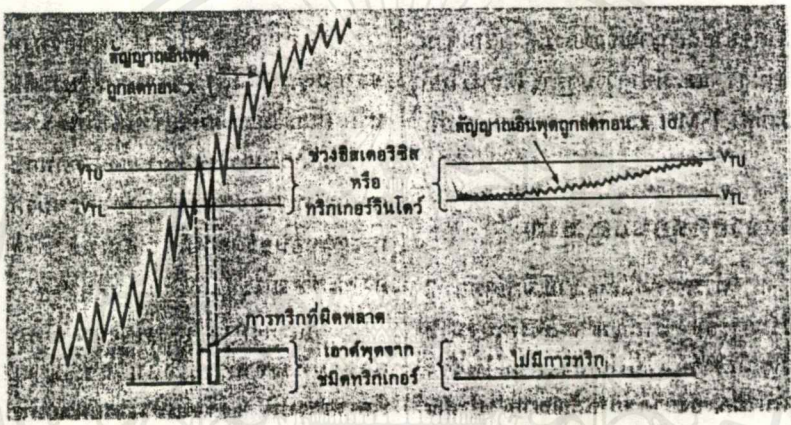 สัญญาณอินพุต
ถูกลดทอน x 1
สัญญาณอินพุตถูกลดทอน x 10
VTU
VTL
ช่วงฮิสเตอริซิส
หรือ
ทริกเกอร์วินโดว์
VTU
VTL
การทริกที่ผิดพลาด
เอาต์พุตจาก
ชมิตทริกเกอร์
ไม่มีการทริก